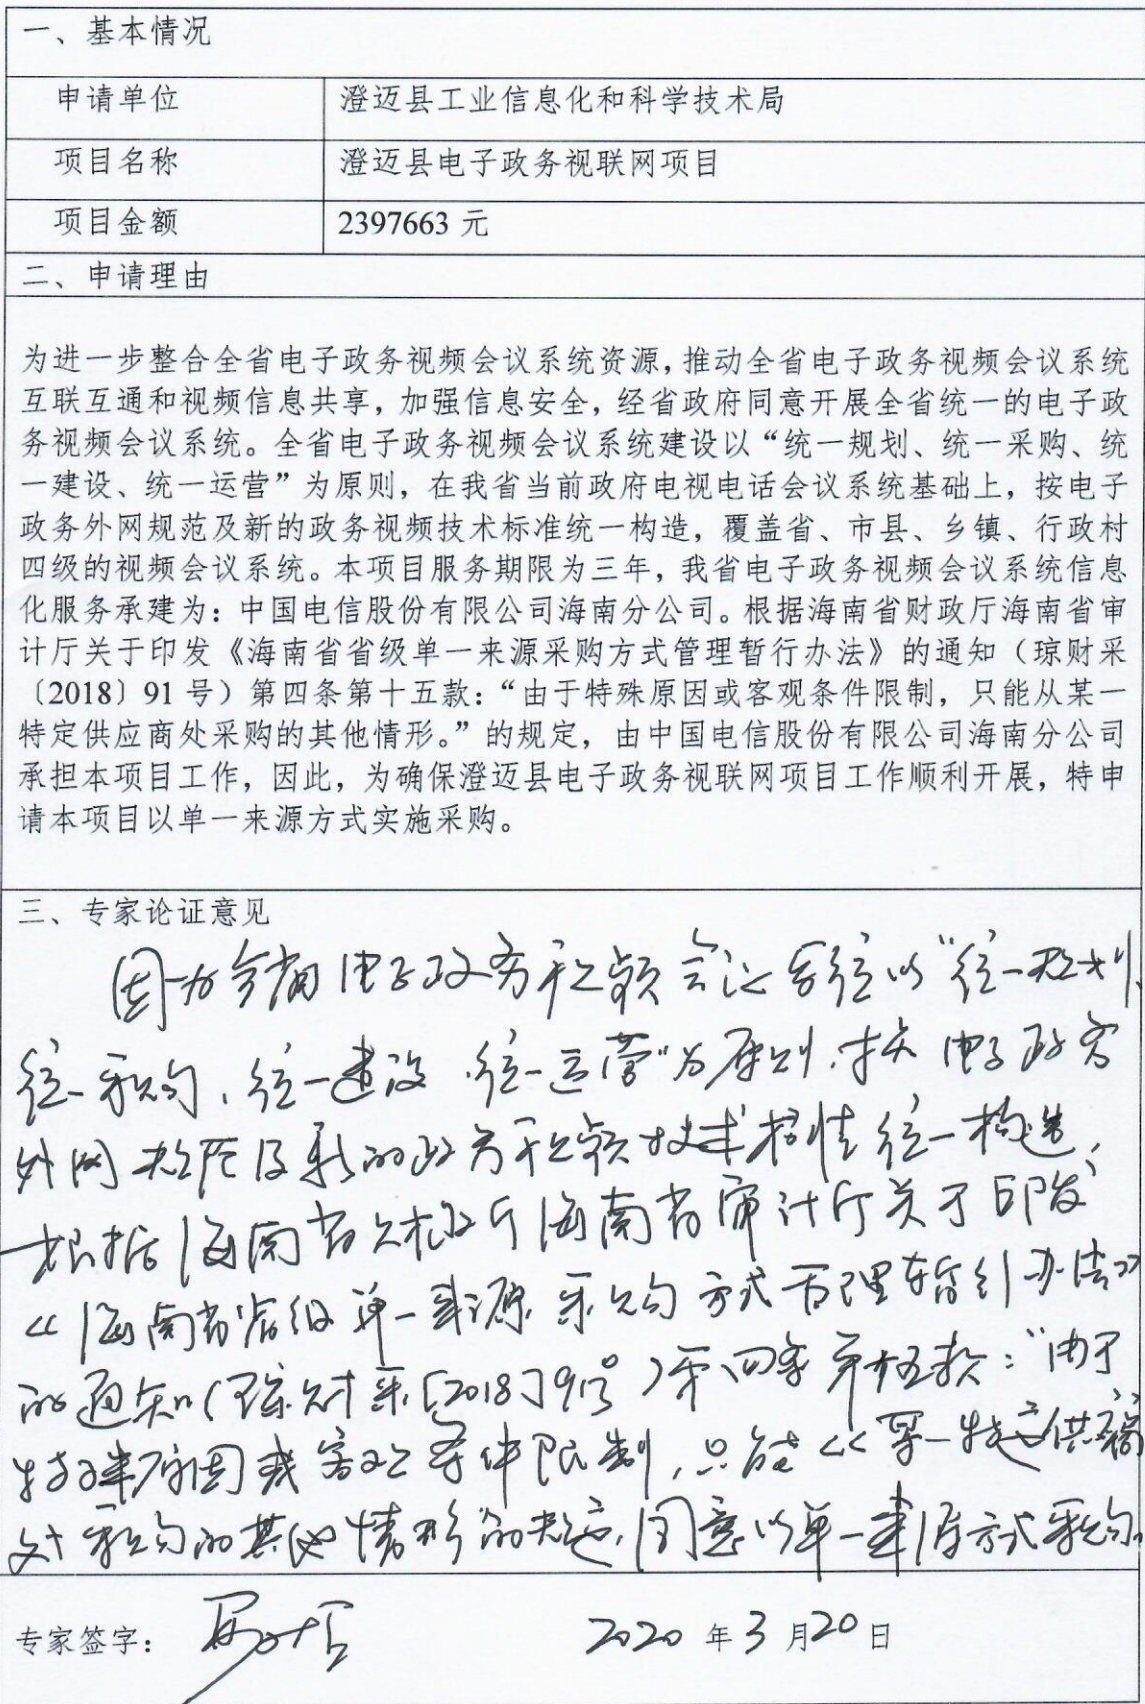 一、基本情况
申请单位 澄迈县工业信息化和科学技术局
项目名称 澄迈县电子政务视联网项目
项目金额 2397663 元
二、申请理由
为进一步整合全省电子政务视频会议系统资源，推动全省电子政务视频会议系统
互联互通和视频信息共享，加强信息安全，经省政府同意开展全省统一的电子政
务视频会议系统。全省电子政务视频会议系统建设以“统一规划、统一采购、统
一建设、统一运营”为原则，在我省当前政府电视电话会议系统基础上，按电子
政务外网规范及新的政务视频技术标准统一构造，覆盖省、市县、乡镇、行政村
四级的视频会议系统。本项目服务期限为三年，我省电子政务视频会议系统信息
化服务承建为：中国电信股份有限公司海南分公司。根据海南省财政厅海南省审
计厅关于印发《海南省省级单一来源采购方式管理暂行办法》的通知（琼财采
〔2018〕91 号）第四条第十五款：“由于特殊原因或客观条件限制，只能从某一
特定供应商处采购的其他情形。”的规定，由中国电信股份有限公司海南分公司
承担本项目工作，因此，为确保澄迈县电子政务视联网项目工作顺利开展，特申
请本项目以单一来源方式实施采购。
三、专家论证意见
因为全省电子政务视频会议系统以“统一规划、
统一采购、统一建设、统一运营”为原则，按电子政务
外网规范及新的政务视频技术标准统一构造，
根据海南省财政厅海南省审计厅关于印发
《海南省省级单一来源采购方式管理暂行办法》
的通知（琼财采［2018］91号）第四条第十五款：“由于
特殊原因或客观条件限制，只能从某一特定供应商
处采购的其他情形”的规定，同意以单一来源方式采购。
专家签字： 2020 年 3 月 20 日